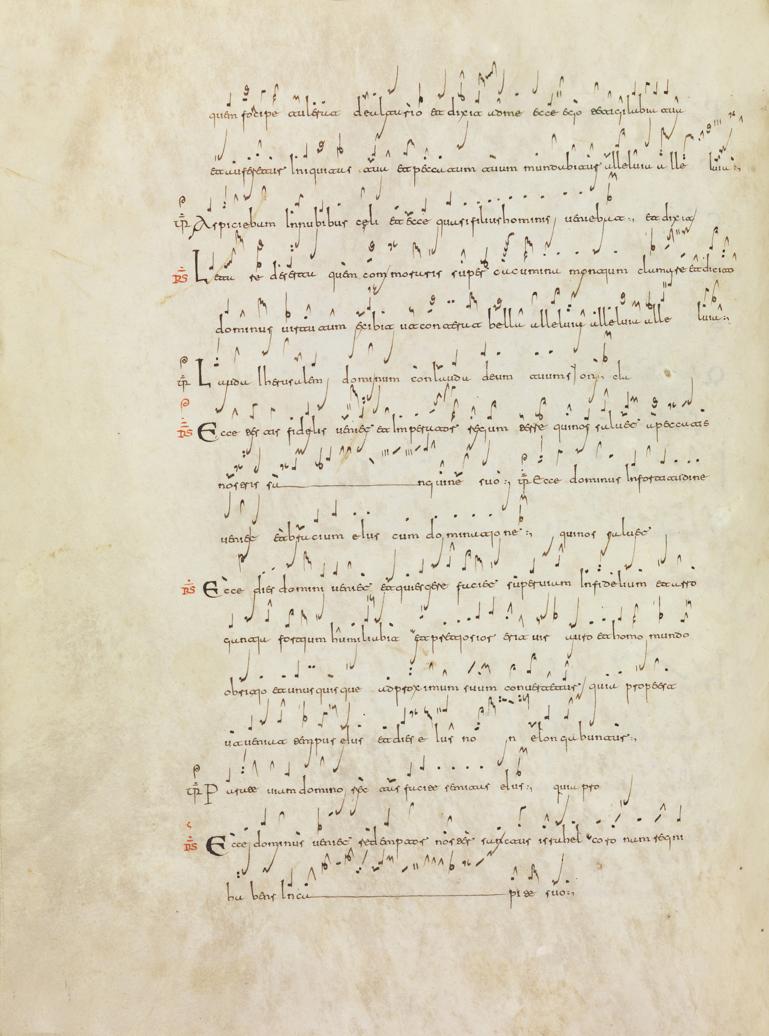 quem forcipe tulerat de altario et dixit ad me ecce ego tetigi labia tua
et auferetur iniquitas tua et peccatum tuum mundabitur alleluia alle luia
Aspiciebam in nubibus celi et ecce quasi filius hominis veniebat et dixit
RS Leta re deserta quem commoraris super cacumina montium et dicito
dominus virtutum exibit ut conterat bella alleluia alleluia alle luia
Lauda Iherusalem dominum conlauda deum tuum sion cla
RS Ecce testis fidelis veniet et imperator gentium esse qui nos salvet a peccatis
nostris sa nguine suo Ecce dominus in fortitudine
veniet et bracium eius cum dominatione qui nos salvet
RS Ecce dies domini veniet et quiescere faciet superviam infidelium et arro
gantiam fortium humiliabit et pretiosior erit vir auro et homo mundo
obrizo et unusquisque ad proximum suum convertetur quia prope est
ut veniat tempus eius et dies e ius no n elongabuntur
Parate viam domino rectas facite semitas eius quia pro
RS Ecce dominus veniet redemptor noster sanctus israhel coronam regni
ha bens in ca pite suo